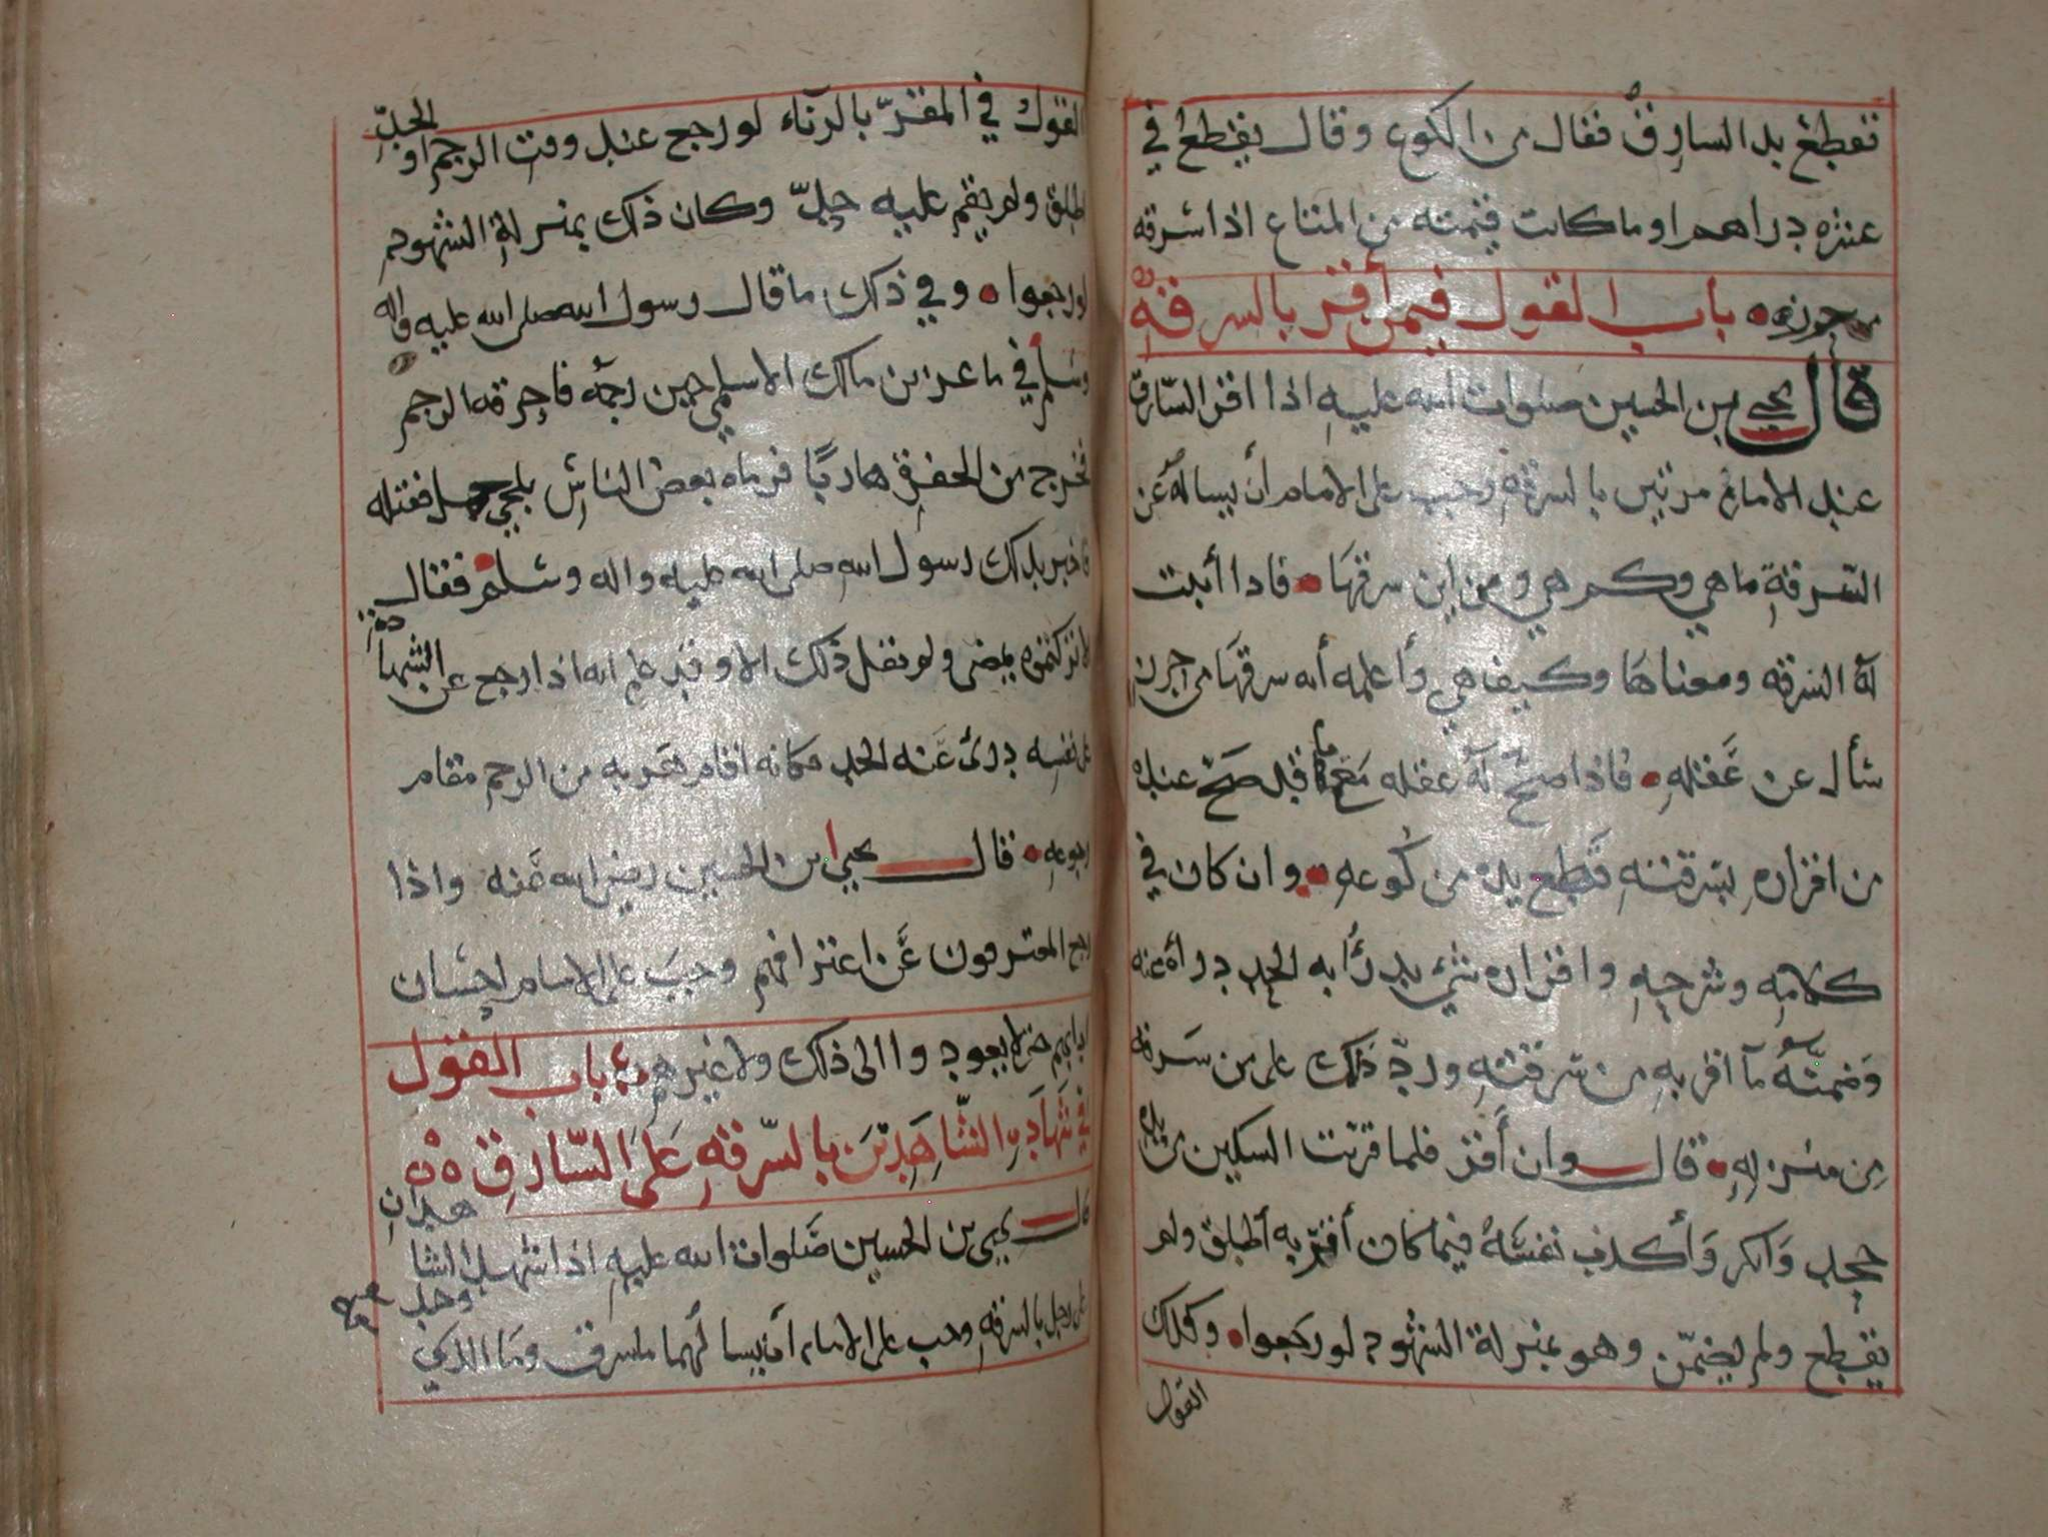 فقطع يد السارق فقال من الكوع وقال يقطع في
عشره دراهم او ما كانت قيمته من المتاع اذا سرقه
من حرزه باب القول فيمن أقر بالسرقه
قال يحيى بن الحسين صلوات الله عليه اذا اقر السارق
عند الامام مرتين بالسرقه وجب على الامام أن يسأله عن
السرقة ما هي وكم هي ومن اين سرقها فاذا أثبت
له السرقه ومعناها وكيف هي وأعلمه أنه سرقها من حرز
سأل عن عقله فاذا صح له عقله مع ما قد صح عنده
من اقراره بسرقته قطع يده من كوعه وان كان في
كلامه وشرحه واقراره شي يدرأ به الحد درأه عنه
وضمنه ما اقر به من سرقته ورد ذلك على من سرقه
من منزله قال وان أقر فلما قربت السكين من يده
جحد وانكر وأكذب نفسه فيما كان أقر به أطلق ولم
يقطع ولم يضمن وهو بمنزلة الشهود لو رجعوا وكذلك
القول
القول في المقر بالزناء لو رجع عند وقت الرجم او الحد
اطلق ولم يقم عليه حد وكان ذلك بمنزلة الشهود
لو رجعوا وفي ذلك ما قال رسول الله صلى الله عليه واله
وسلم في ماعز بن مالك الاسلمي حين رجمه فاحرقه الرجم
فخرج من الحفرة هاربا فرماه بعض الناس بلحي جمل فقتله
فاخبر بذلك رسول الله صلى الله عليه واله وسلم فقال
لا تركتموه يمضي ولم يقل ذلك الا وقد علم انه اذا رجع عن الشهادة
على نفسه درئ عنه الحد فكانه اقام هربه من الرجم مقام
رجوعه قال يحيى بن الحسين رضي الله عنه واذا
رجع المعترفون عن اعترافهم وجب على الامام احسان
ادبهم حتى لا يعودوا الى ذلك ولا غيرهم باب القول
في شهادة الشاهدين بالسرقه على السارق
قال يحيى بن الحسين صلوات الله عليه اذا شهد الشاهدان
على رجل بالسرقه وجب على الامام أن يسألهما ما سرق وما الذي